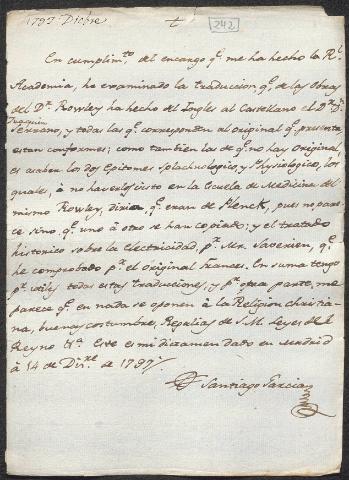 1797. Dicbre
242
En cumplim.to del encargo q.e me ha hecho la R.l
Academia, he examinado la traducion q.e de las Obras
del D.r Rowley ha hecho del Ingles al Castellano el D.r D.n
Joaquin
Serrano, y todas las q.e corresponden al original q.e presenta
estan conformes; como tambien las de q.e no hay original,
es asaber los dos Epitomes Splachnologico, y Physiologico, los
quales, à no haverlos visto en la Escuela de Medicina del
mismo Rowley, diria q.e eran de Plenck, pues no pare-
ce sino q.e uno à otro se han copiado; y el tratado
historico sobre la electricidad, p.r Mr. Saverien, q.e
he comprobado p.r el original frances. En suma tengo
p.r utiles todas estas traducciones, y p.r otra parte, me
parece q.e en nada se oponen à la Religion christia-
na, buenas costumbres, Regalias de S. M. Leyes del
Reyno &a. Este es mi dictamen dado en Madrid
à 14 de Diz.re de 1797.
Santiago Garcia